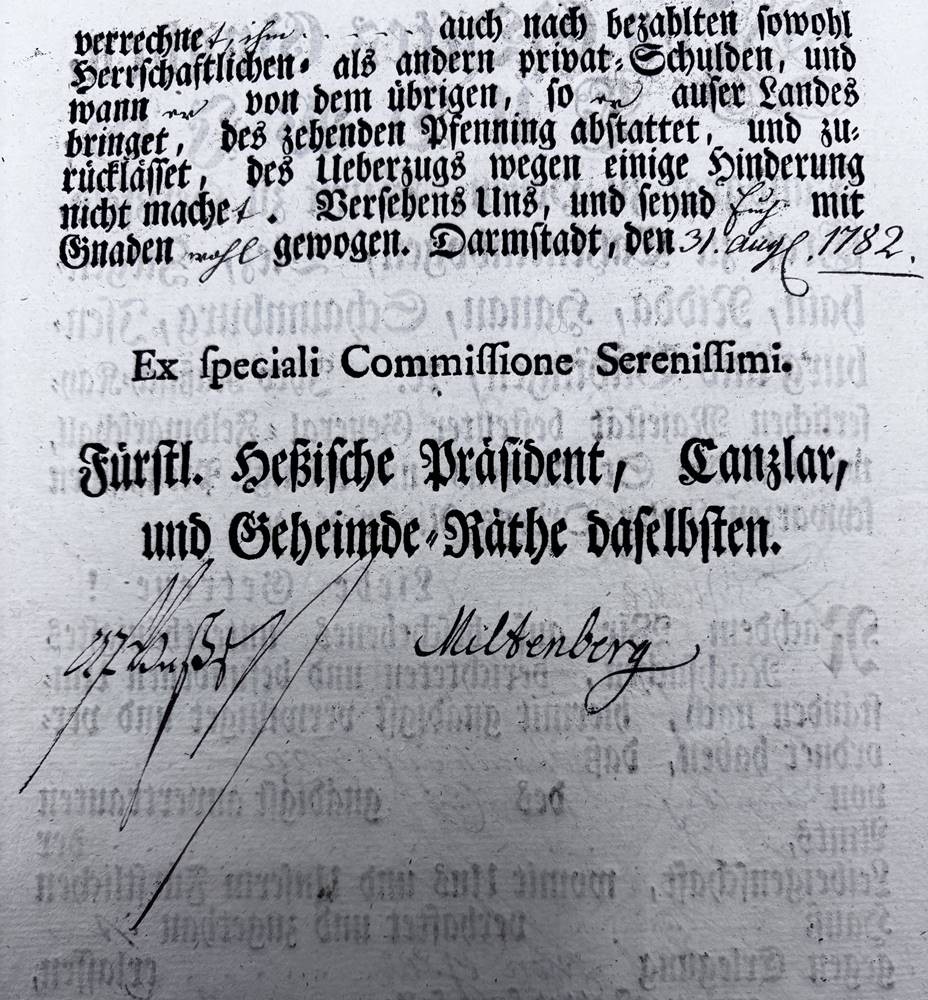 verrechnet, ihm - - - - auch nach bezahlten sowohl
Herrschaftlichen- als andern privat-Schulden, und
wann er von dem übrigen, so er auser Landes
bringet, des zehenden Pfenning abstattet, und zu-
rücklässet, des Ueberzugs wegen einige Hinderung
nicht machet. Versehens Uns, und seynd Euch mit
Gnaden wohl gewogen. Darmstadt, den 31. Aug. 1782.
Ex speciali Commissione Serenissimi.
Fürstl. Heßische Präsident, Canzlar,
und Geheimde-Räthe daselbsten.
Miltenberg